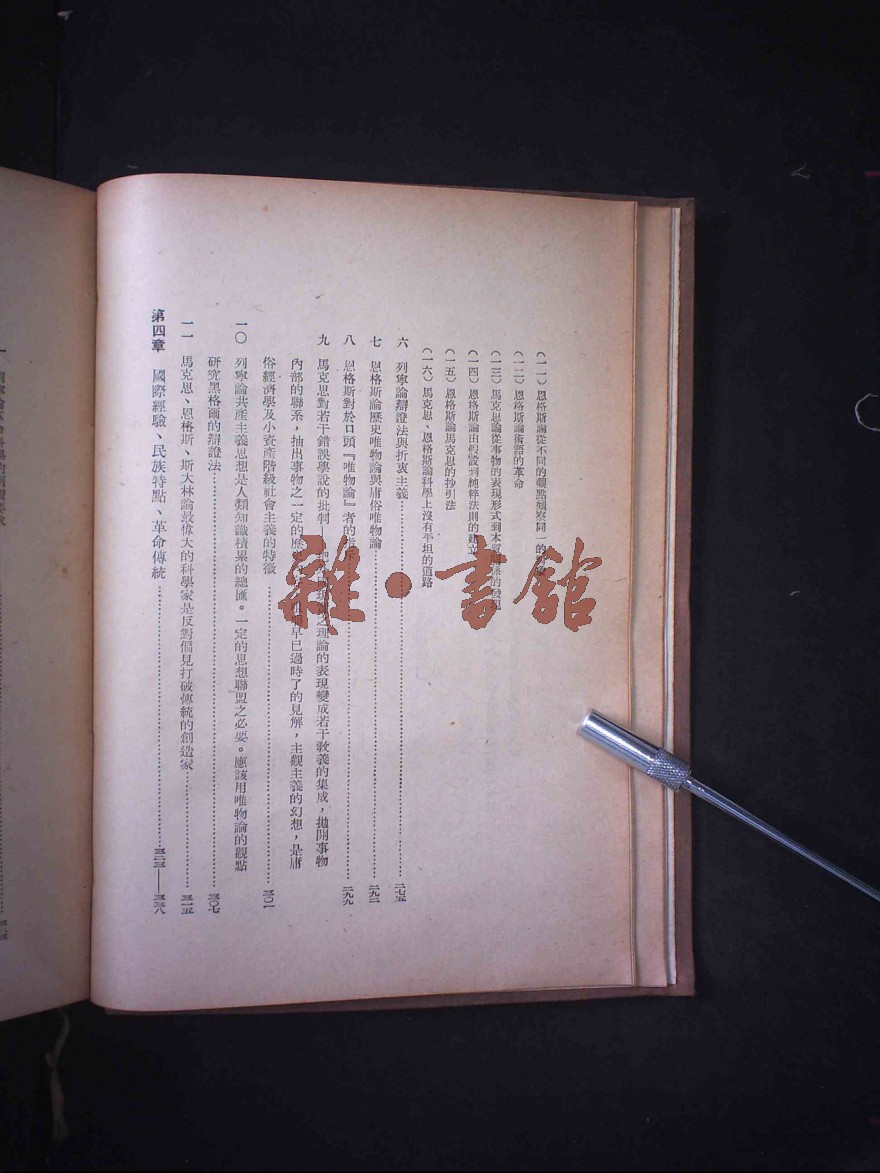 （一一）恩格斯論從不同的觀點觀察同一的
（一二）恩格斯論術語的革命
（一三）馬克思論從事物的表現形式到本質關係的發現
（一四）恩格斯論由假設到純粹法則的建立
（一五）恩格斯論馬克思的抄引法
（一六）馬克思、恩格斯論科學上沒有平坦的道路
六 列寧論辯證法與折衷主義……二七五
七 恩格斯論歷史唯物論與庸俗唯物論……二九二
八 恩格斯對於口頭『唯物論』者的……二九九
九 馬克思對若干錯誤學說的批判——把 之理論的表現變成若干教義的集成，拋開事物
內部的聯系，抽出事物之一定的歷史 早已過時了的見解，主觀主義的幻想，是庸
俗經濟學及小資產階級社會主義的特徵……三〇一
一〇 列寧論共產主義思想是人類知識積累的總匯。一定的思想聯盟之必要。應該用唯物論的觀點
研究黑格爾的辯證法……三〇七
一一 馬克思、恩格斯、斯大林論最偉大的科學家是反對偏見打破傳統的創造家……三一五
第四章 國際經驗、民族特點、革命傳統……三二三——三三八
雜·書館